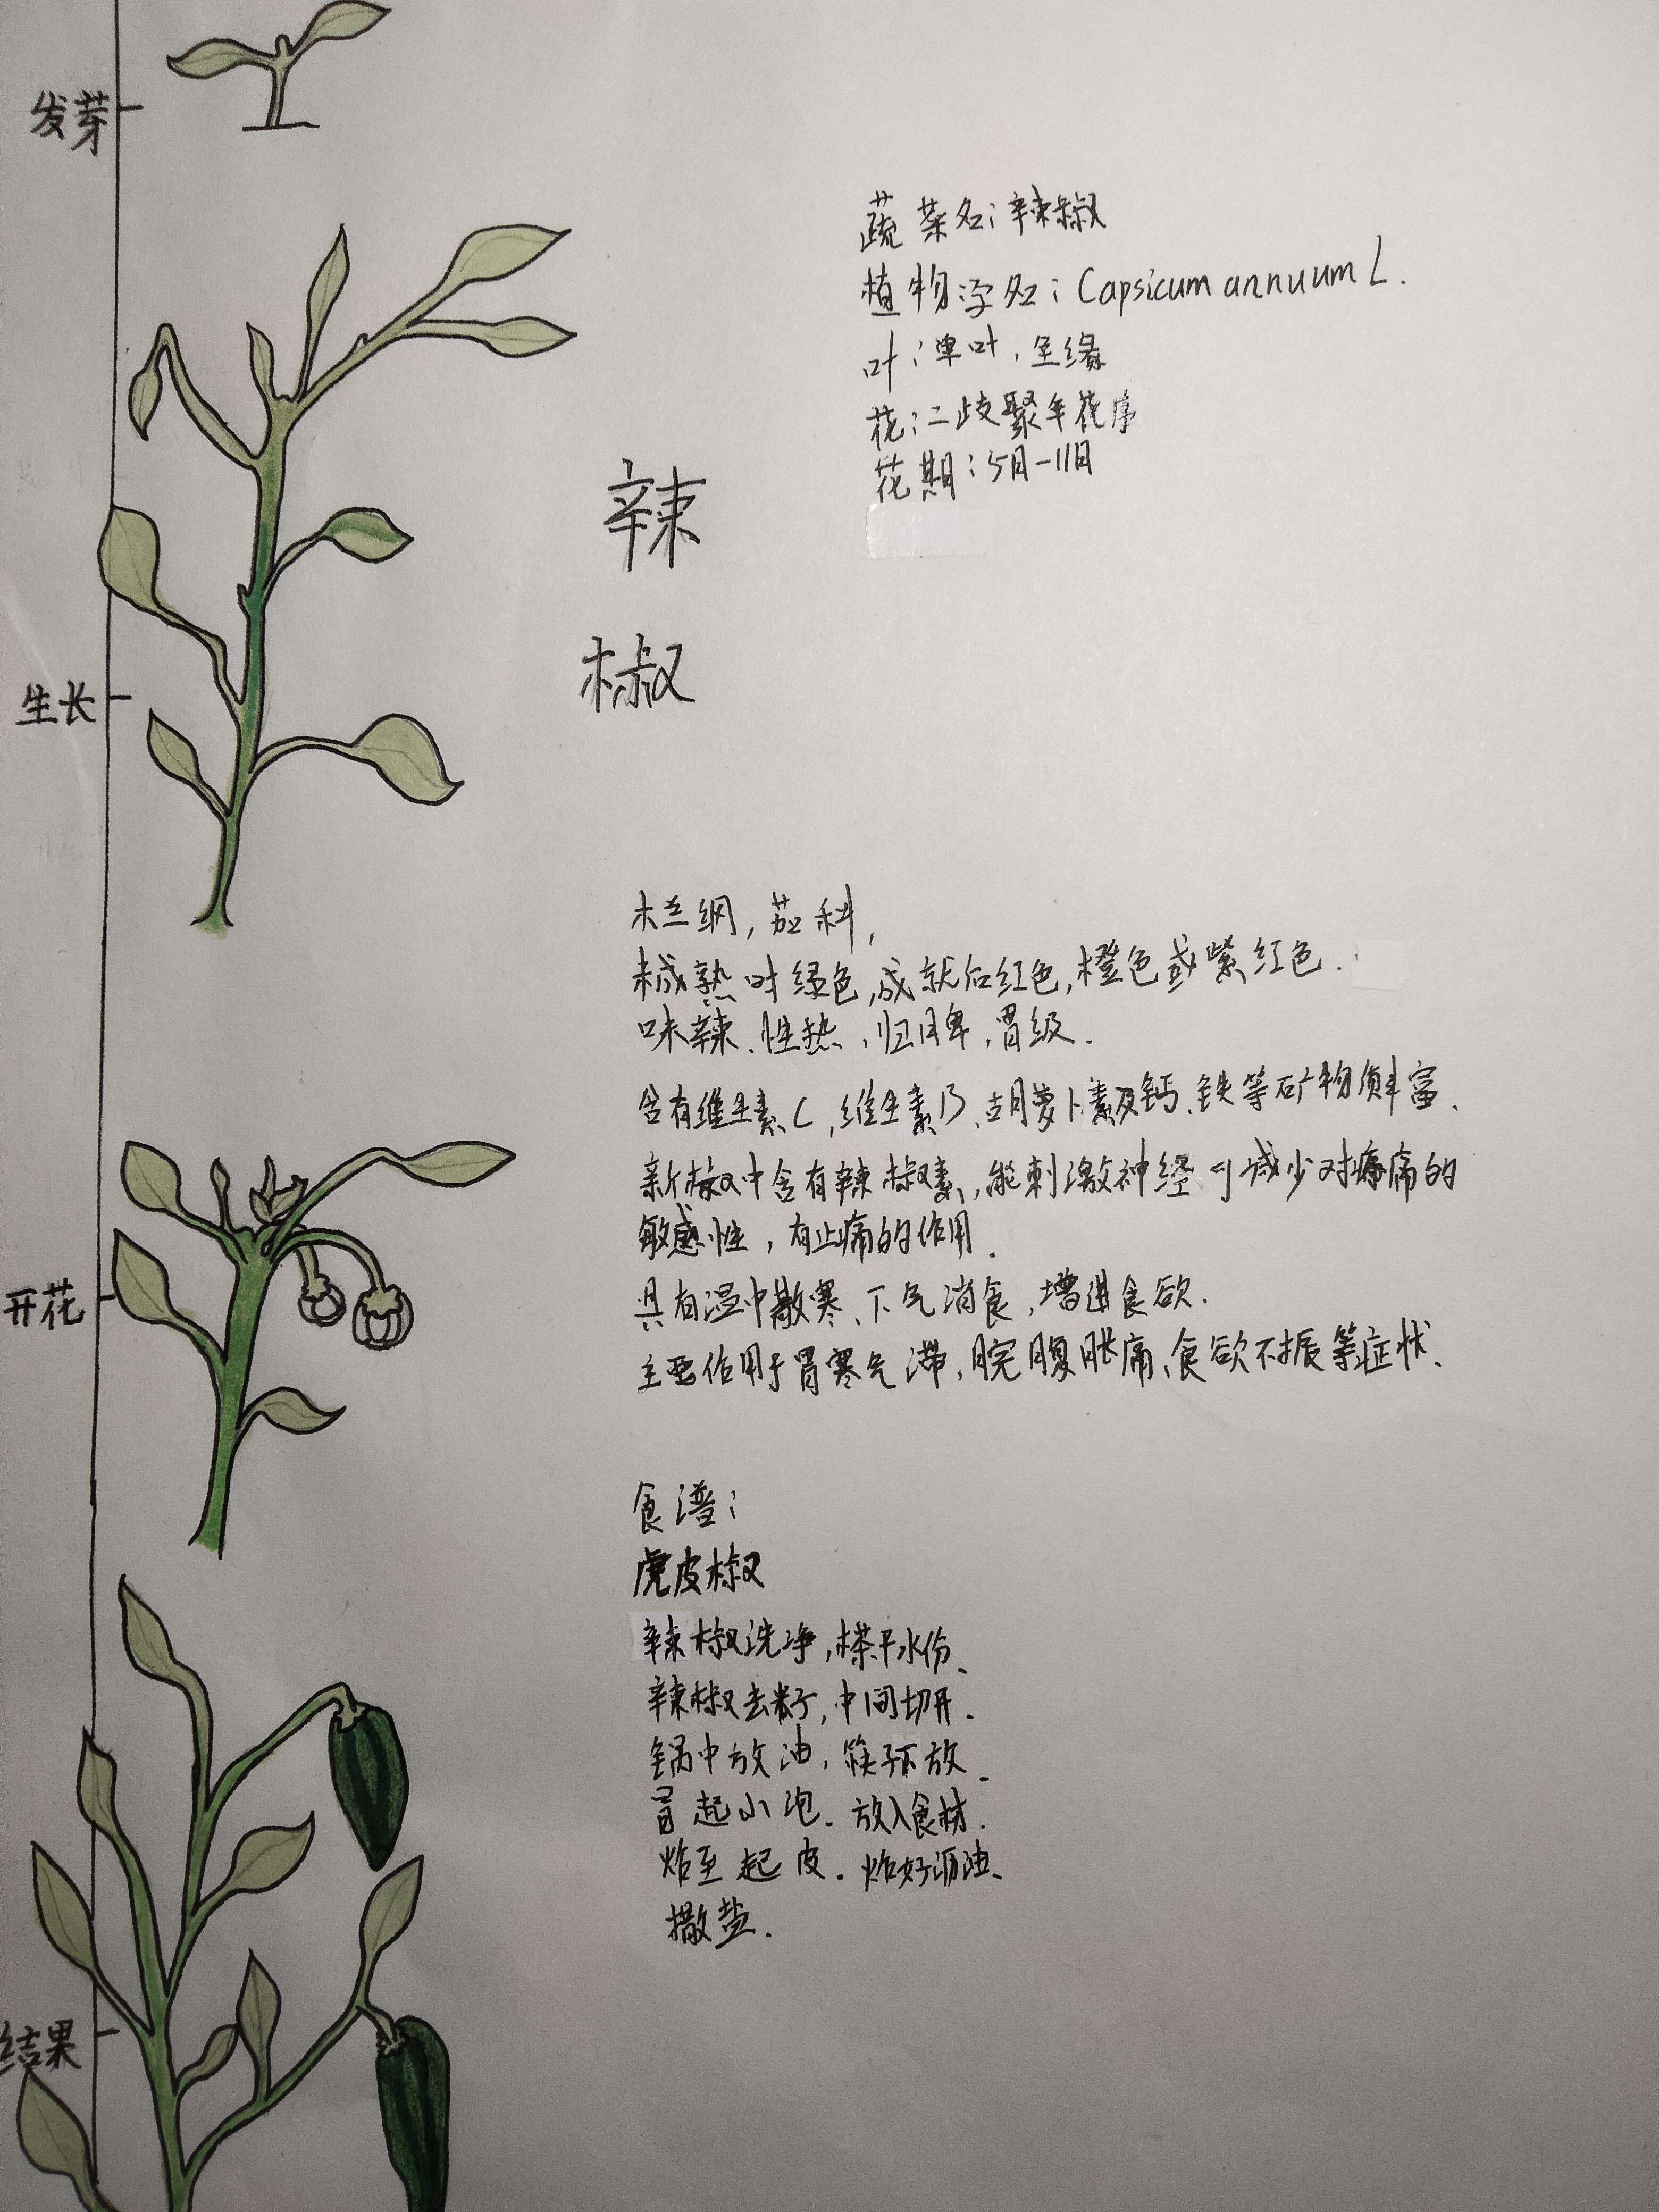 发芽
生长
开花
结果
辣
椒
蔬菜名:辣椒
植物学名:Capsicum annuum L.
叶:单叶,全缘
花:二歧聚伞花序
花期:5月-11月
木兰纲,茄科,
未成熟时绿色,成就后红色,橙色或紫红色.
味辣、性热,归脾,胃级.
含有维生素C,维生素B、胡萝卜素及钙、铁等矿物质丰富、
新椒中含有辣椒素,能刺激神经可减少对疼痛的
敏感性,有止痛的作用.
具有温中散寒、下气消食,增进食欲.
主要作用于胃寒气滞,脘腹胀痛、食欲不振等症状、
食谱:
虎皮椒
辣椒洗净,搽干水份、
辣椒去籽,中间切开.
锅中放油,筷子下放.
冒起小泡.放入食材.
炸至起皮.炸好沥油、
撒盐.